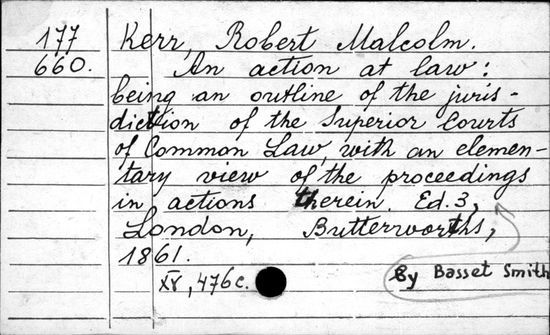 177 Kerr, Robert Malcolm.
660. An action at law:
being an outline of the juris-
diction of the Superior Courts
of Common Law, with an elemen-
tary view of the proceedings
in actions therein. Ed. 3,
London, Butterworths,
1861.
By Basset Smith
XV, 476c.